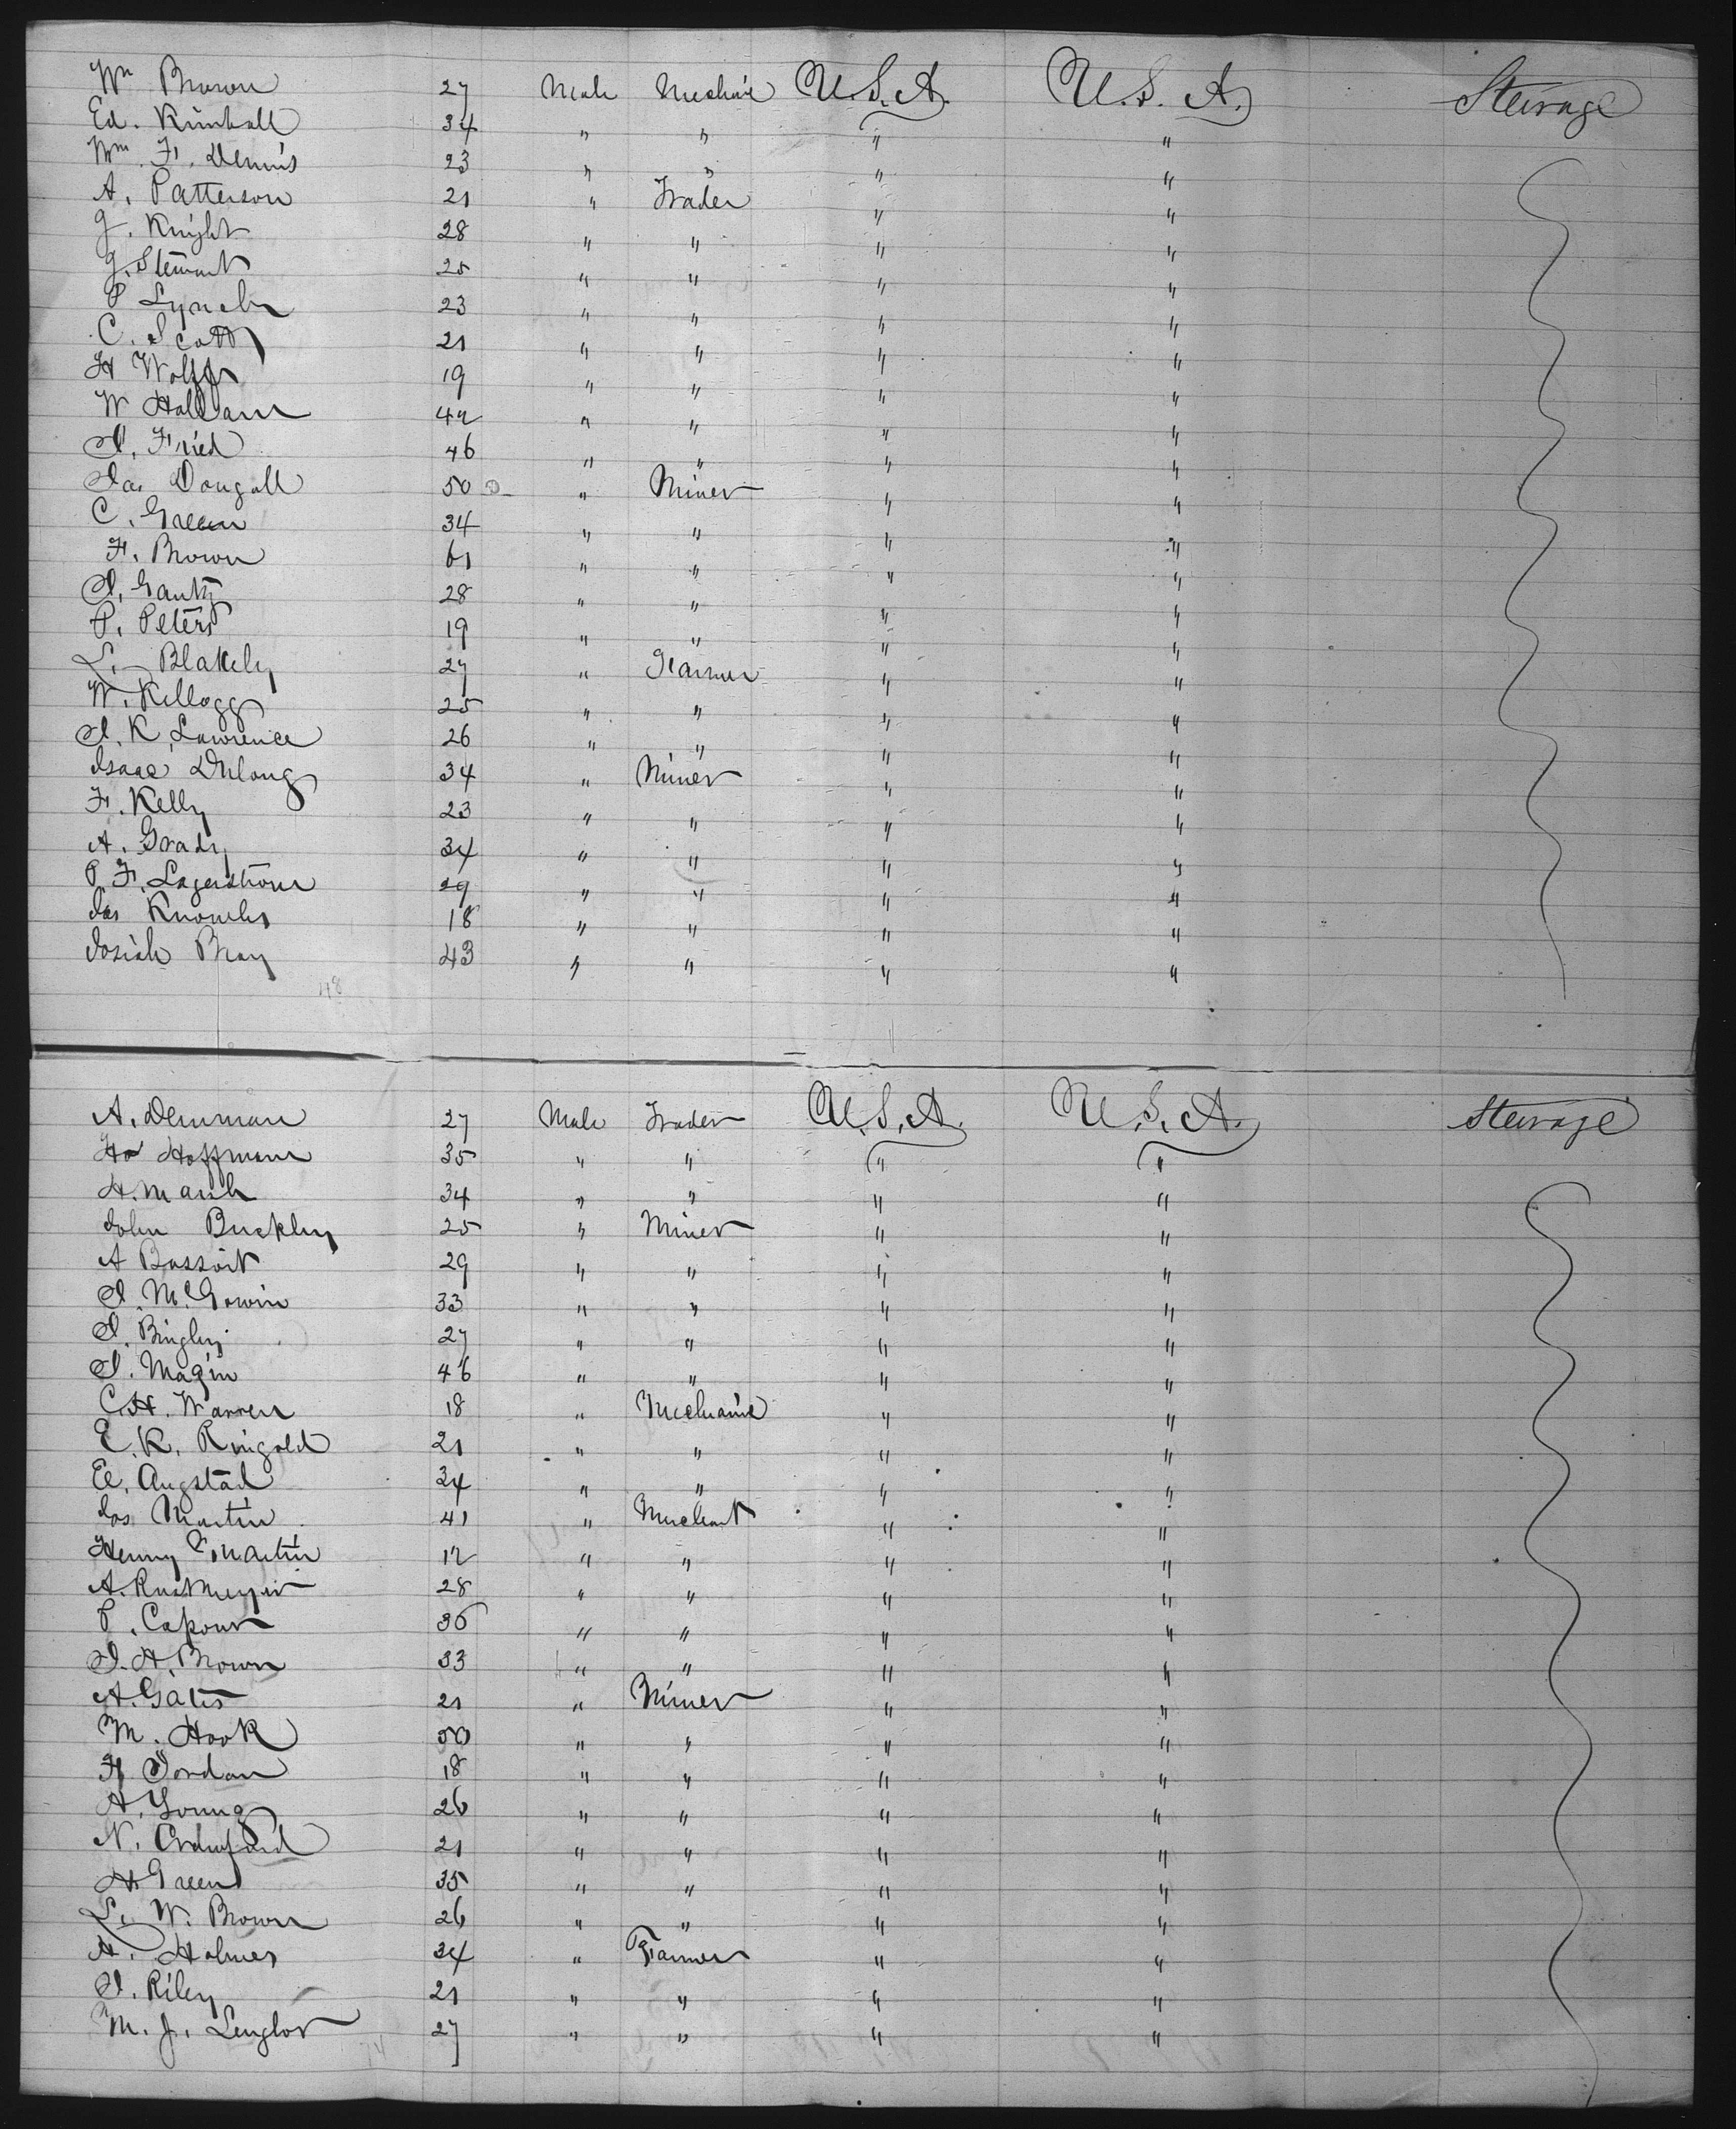 Wm Brown 27 Male Mechanic U.S.A. U.S.A. Steerage
Ed. Kimball 34 " " " "
Wm. F. Dennis 23 " " " "
A. Patterson 21 " Trader " "
J. Knight 28 " " " "
J. Stewart 25 " " " "
P Lynch 23 " " " "
C. Scott 21 " " " "
H Wolff 19 " " " "
W Hallam 42 " " " "
I. Fried 46 " " " "
Jas Dougall 50 " Miner " "
C. Green 34 " " " "
F. Brown 61 " " " "
I. Gantz 28 " " " "
P. Peters 19 " " " "
L. Blakely 27 " Farmer " "
W. Kellogg 25 " " " "
I. K. Lawrence 26 " " " "
Isaac Delong 34 " Miner " "
F. Kelly 23 " " " "
A. Grady 34 " " " "
P. F. Lagerstrom 29 " " " "
Jas Knowles 18 " " " "
Josiah Bray 43 " " " "
48
A. Denman 27 Male Trader U.S.A. U.S.A. Steerage
Hoffman 35 " " " "
H. Marsh 34 " " " "
John Buckley 25 " Miner " "
A 29 " " " "
I. McGowin 33 " " " "
I. Bingley 27 " " " "
I. Magin 46 " " " "
C. H. Warren 18 " Mechanic " "
E. K. Ringold 21 " " " "
Ed. Angstad 34 " " " "
Jos Martin 41 " Merchant " "
Henry Martin 12 " " " "
A. 28 " " " "
P. " " " "
I. H. Brown 33 " " " "
A. Gates 21 " Miner " "
M. Hook 50 " " " "
H Jordan 18 " " " "
A. Young 26 " " " "
N. Crawford 21 " " " "
H Green 35 " " " "
L. W. Brown 26 " " " "
A. Holmes 34 " Farmer " "
I. Riley 21 " " " "
M. J. 27 " " " "